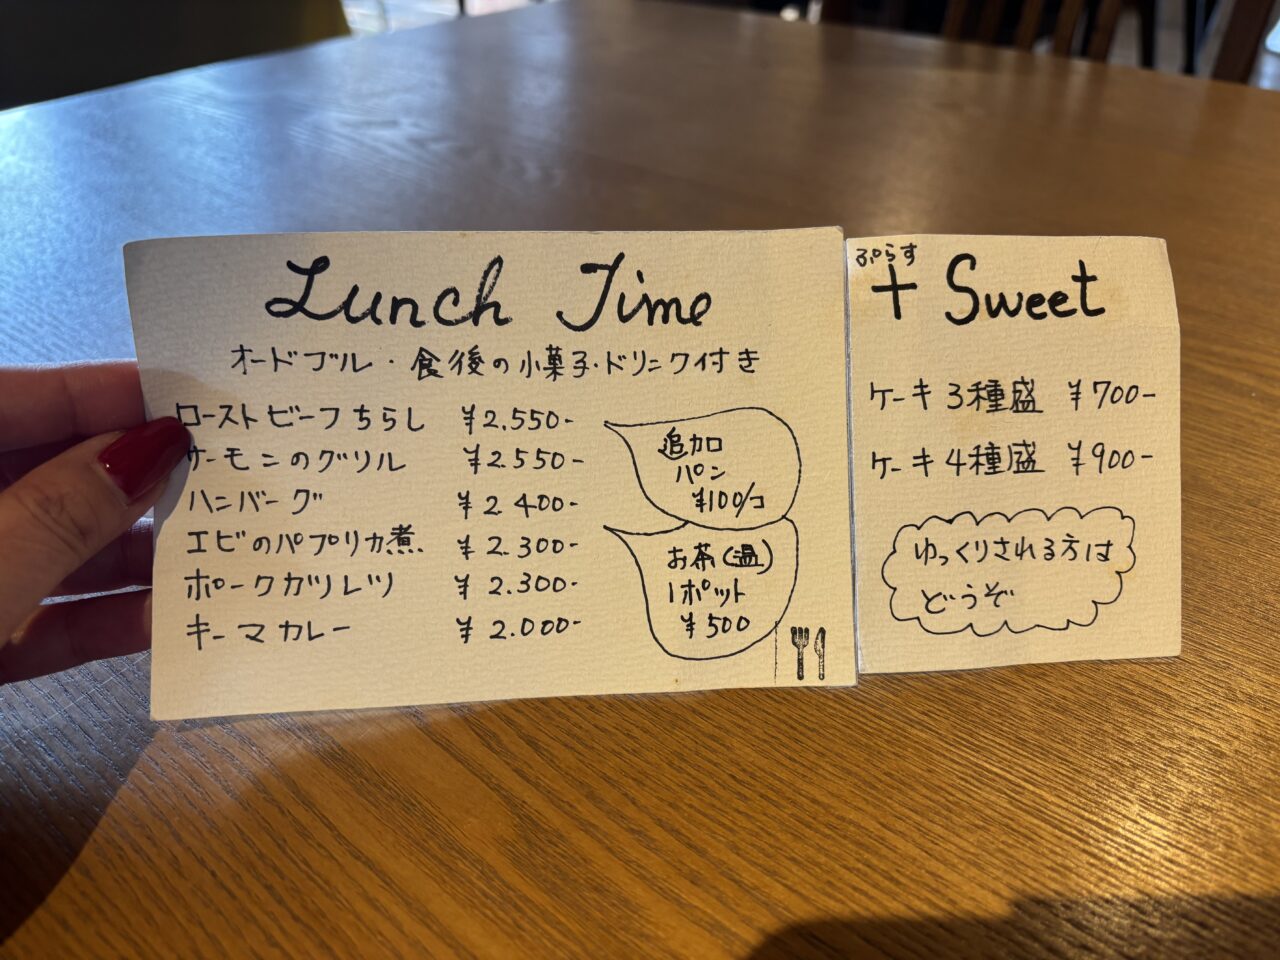 Lunch Time
オードブル・食後の小菓子・ドリンク付き
ローストビーフちらし ¥2.550-
サーモンのグリル ¥2.550-
ハンバーグ ¥2.400-
エビのパプリカ煮. ¥2.300-
ポークカツレツ ¥2.300-
キーマカレー ¥2.000-
追加
パン
¥100/コ
お茶(温)
1ポット
¥500
ぷらす
+ Sweet
ケーキ3種盛 ¥700-
ケーキ4種盛 ¥900-
ゆっくりされる方は
どうぞ